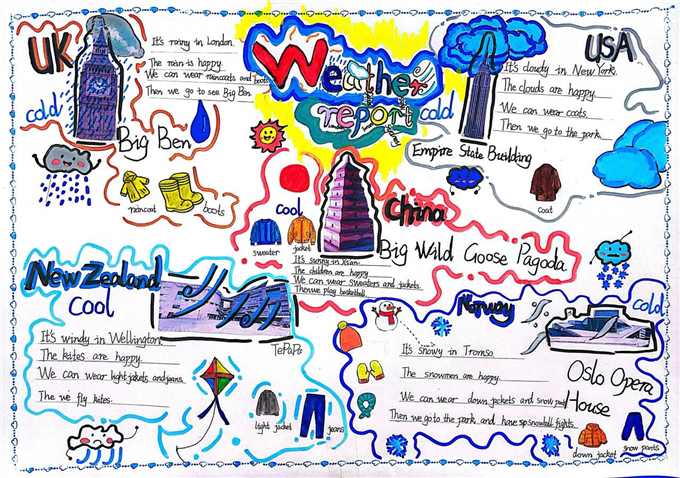 Weather
report
UK
It's rainy in London.
The rain is happy.
We can wear raincoats and boots
Then we go to see Big Ben
cold
Big Ben
raincoat
boots
USA
It's cloudy in New York.
The clouds are happy.
We can wear coats.
Then we go to the park.
cold
Empire State Building
coat
China
cool
sweater
jacket
Big Wild Goose Pagoda
It's sunny in Xi'an.
The children are happy
We can wear sweaters and jackets.
Then we play basketball
New Zealand
cool
TePaPa
It's windy in Wellington.
The kites are happy.
We can wear light jackets and jeans.
The we fly kites.
light jacket
jeans
Norway
cold
It's snowy in Tromso.
The snowmen are happy.
We can wear down jackets and snow pants
Then we go to the park and have sp snowball fights.
Oslo Opera
House
down jacket
snow pants